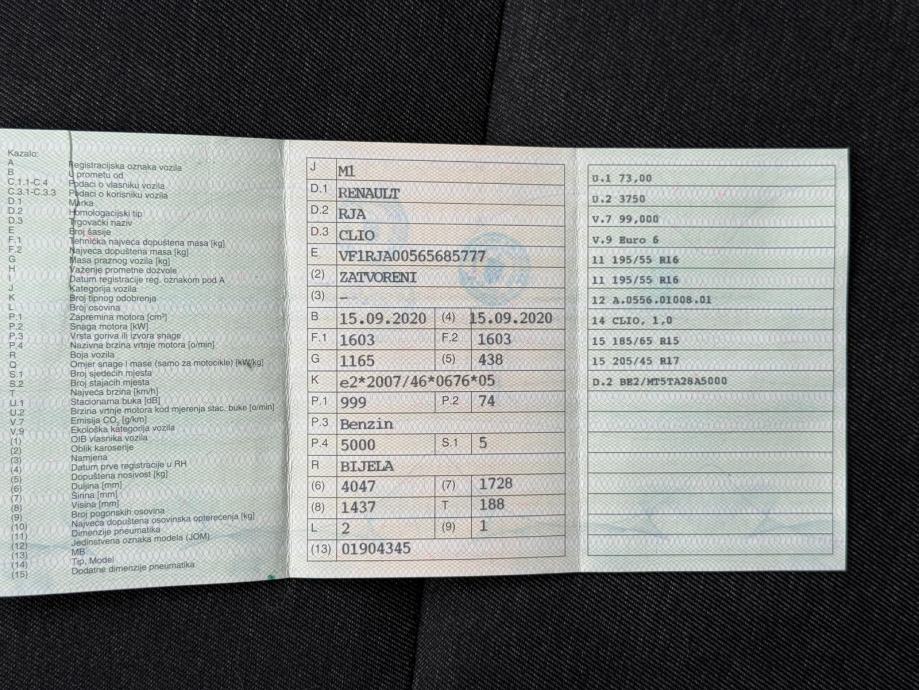 Kazalo:
A Registracijska oznaka vozila
B U prometu od
C.1.1-C.4 Podaci o vlasniku vozila
C.3.1-C.3.3 Podaci o korisniku vozila
D.1 Marka
D.2 Homologacijski tip
D.3 Trgovački naziv
E Broj šasije
F.1 Tehnička najveća dopuštena masa [kg]
F.2 Najveća dopuštena masa [kg]
G Masa praznog vozila [kg]
H Važenje prometne dozvole
I Datum registracije reg. oznakom pod A
J Kategorija vozila
K Broj tipnog odobrenja
L Broj osovina
P.1 Zapremina motora [cm³]
P.2 Snaga motora [kW]
P.3 Vrsta goriva ili izvora snage
P.4 Nazivna brzina vrtnje motora [o/min]
R Boja vozila
Q Omjer snage i mase (samo za motocikle) [kW/kg]
S.1 Broj sjedećih mjesta
S.2 Broj stajaćih mjesta
T Najveća brzina [km/h]
U.1 Stacionarna buka [dB]
U.2 Brzina vrtnje motora kod mjerenja stac. buke [o/min]
V.7 Emisija CO₂ [g/km]
V.9 Ekološka kategorija vozila
(1) OIB vlasnika vozila
(2) Oblik karoserije
(3) Namjena
(4) Datum prve registracije u RH
(5) Dopuštena nosivost [kg]
(6) Duljina [mm]
(7) Širina [mm]
(8) Visina [mm]
(9) Broj pogonskih osovina
(10) Najveća dopuštena osovinska opterećenja [kg]
(11) Dimenzije pneumatika
(12) Jedinstvena oznaka modela (JOM)
(13) MB
(14) Tip, Model
(15) Dodatne dimenzije pneumatika
J M1
D.1 RENAULT
D.2 RJA
D.3 CLIO
E VF1RJA00565685777
(2) ZATVORENI
(3) –
B 15.09.2020 (4) 15.09.2020
F.1 1603 F.2 1603
G 1165 (5) 438
K e2*2007/46*0676*05
P.1 999 P.2 74
P.3 Benzin
P.4 5000 S.1 5
R BIJELA
(6) 4047 (7) 1728
(8) 1437 T 188
L 2 (9) 1
(13) 01904345
U.1 73,00
U.2 3750
V.7 99,000
V.9 Euro 6
11 195/55 R16
11 195/55 R16
12 A.0556.01008.01
14 CLIO, 1,0
15 185/65 R15
15 205/45 R17
D.2 BE2/MT5TA28A5000